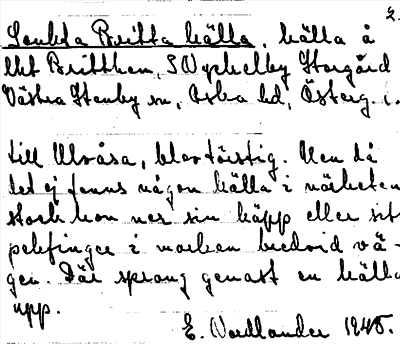 2.
Sankta Britta källa, källa å
lht Britthem, S Nyckelby Storgård
Västra Stenby sn, Aska hd, Österg. l.
till Ulvåsa, blev törstig. Men då
det ej fanns någon källa i närheten
stack hon ner sin käpp eller sitt
pekfinger i marken bredvid vä-
gen. Där sprang genast en källa
upp.
E. Nordlander 1945.